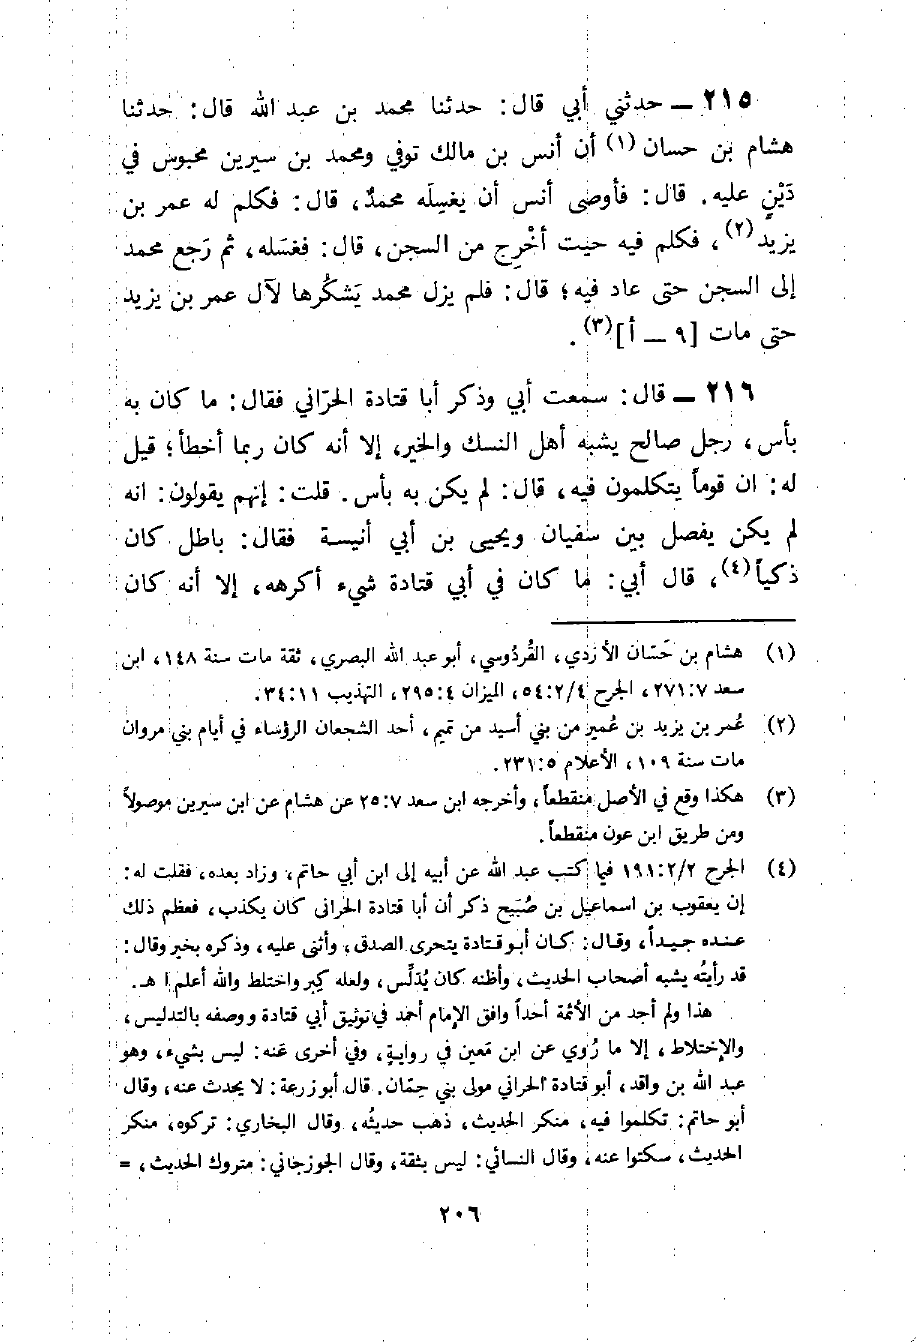 ٢١٥ ــ حدثني أبي قال: حدثنا محمد بن عبد الله قال: حدثنا
هشام بن حسان (١) أن أنس بن مالك توفي ومحمد بن سيرين محبوس في
دَيْنٍ عليه. قال: فأوصى أنس أن يغسِلَه محمدٌ، قال: فكلم له عمر بن
يزيد (٢)، فكلم فيه حيث أُخْرِج من السجن، قال: فغسَله، ثم رَجع محمد
إلى السجن حتى عاد فيه؛ قال: فلم يزل محمد يَشكُرها لآل عمر بن يزيد
حتى مات [٩ ــ أ] (٣).
٢١٦ ــ قال: سمعت أبي وذكر أبا قتادة الحرّاني فقال: ما كان به
بأس، رجل صالح يشبه أهل النسك والخير، إلا أنه كان ربما أخطأ؛ قيل
له: ان قوماً يتكلمون فيه، قال: لم يكن به بأس. قلت: إنهم يقولون: انه
لم يكن يفصل بين سفيان ويحيى بن أبي أنيسة فقال: باطل كان
ذكياً (٤)، قال أبي: ما كان في أبي قتادة شيء أكرهه، إلا أنه كان
(١) هشام بن حَسَّان الأزدي، القُردُوسي، أبو عبد الله البصري، ثقة مات سنة ١٤٨، ابن
سعد ٢٧١:٧، الجرح ٥٤:٢/٤، الميزان ٢٩٥:٤، التهذيب ٣٤:١١.
(٢) عُمر بن يزيد بن عُمير من بني أسيد من تميم، أحد الشجعان الرؤساء في أيام بني مروان
مات سنة ١٠٩، الأعلام ٢٣١:٥.
(٣) هكذا وقع في الأصل منقطعاً، وأخرجه ابن سعد ٢٥:٧ عن هشام عن ابن سيرين موصولاً
ومن طريق ابن عون منقطعاً.
(٤) الجرح ١٩١:٢/٢ فيما كتب عبد الله عن أبيه إلى ابن أبي حاتم، وزاد بعده، فقلت له:
إن يعقوب بن اسماعيل بن صُبَيح ذكر أن أبا قتادة الحراني كان يكذب، فعظم ذلك
عنده جيداً، وقال: كان أبو قتادة يتحرى الصدق، وأثنى عليه، وذكره بخير وقال:
قد رأيتُه يشبه أصحاب الحديث، وأظنه كان يُدَلِّس، ولعله كبِر واختلط والله أعلم ا هـ.
هذا ولم أجد من الأئمة أحداً وافق الإمام أحمد في توثيق أبي قتادة ووصفه بالتدليس،
والإختلاط، إلا ما رُوي عن ابن مَعين في روايةٍ، وفي أخرى عَنه: ليس بشيء، وهو
عبد الله بن واقد، أبو قتادة الحراني مولى بني حِمّان. قال أبو زرعة: لا يحدث عنه، وقال
أبو حاتم: تكلموا فيه، منكر الحديث، ذهب حديثُه، وقال البخاري: تركوه، منكر
الحديث، سكتوا عنه، وقال النسائي: ليس بثقة، وقال الجوزجاني: متروك الحديث، =
٢٠٦